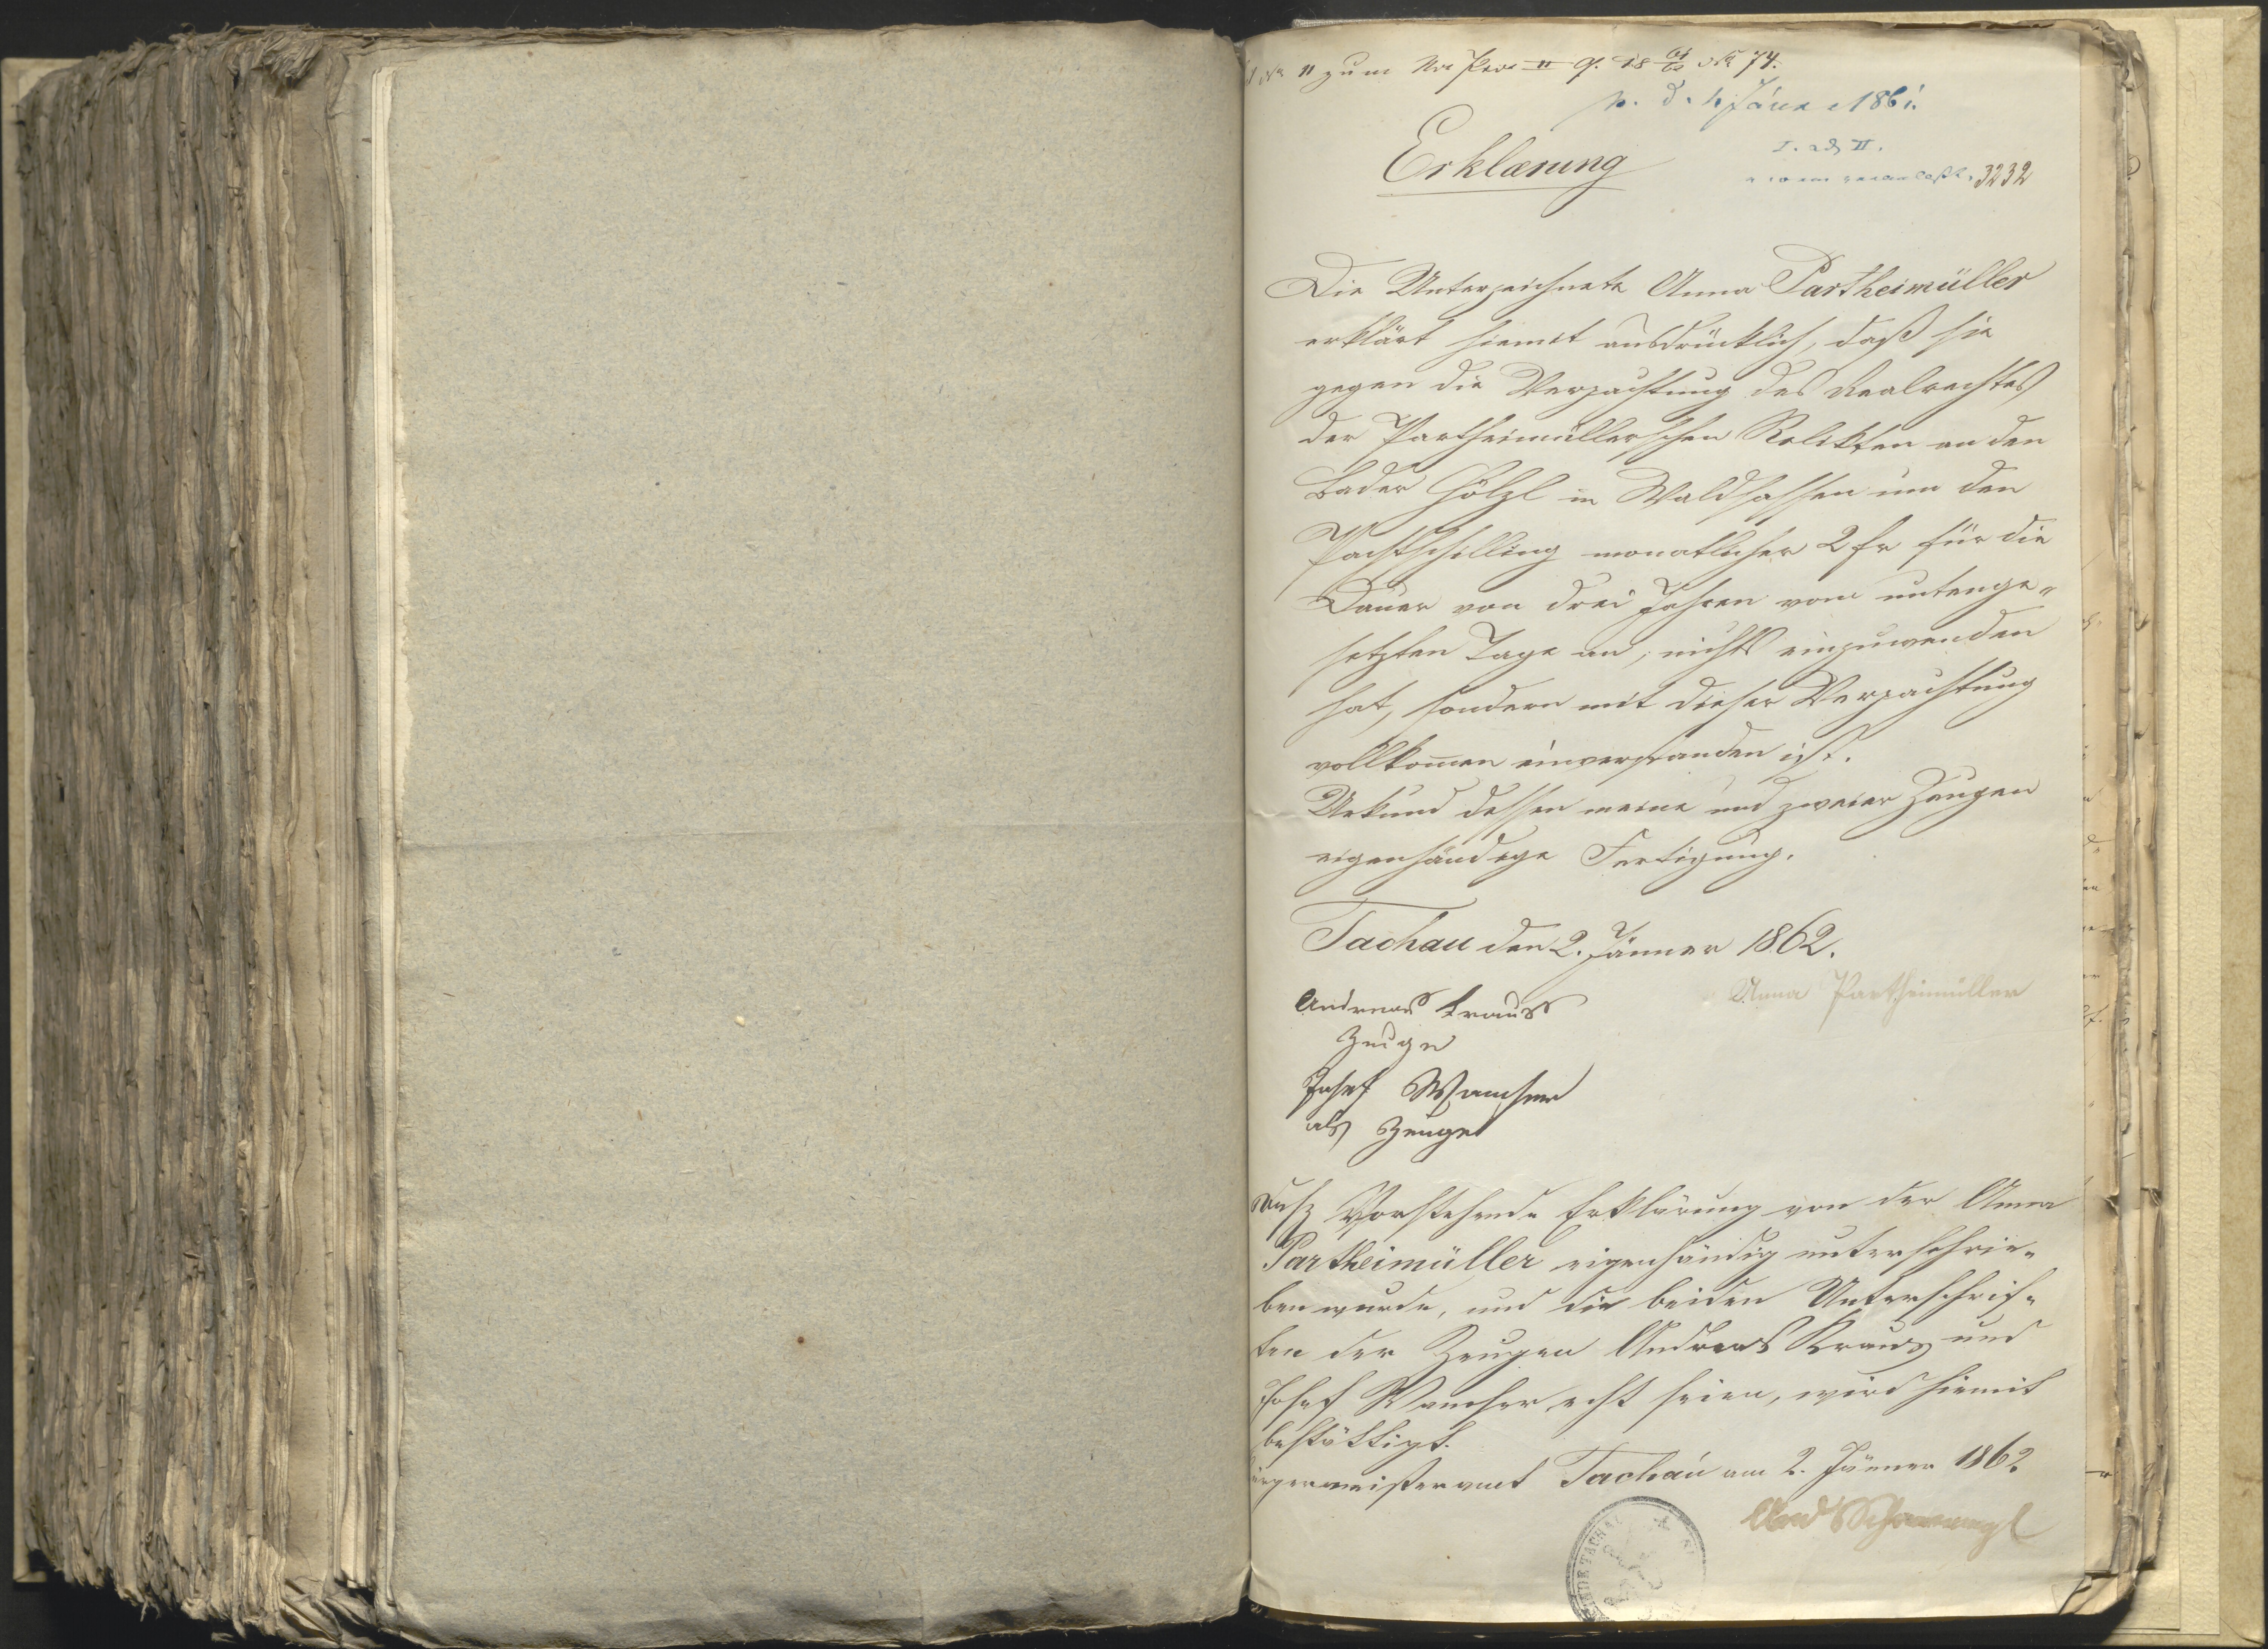 11 zum 74.
p. d. 4 Jäner 1861.
I. ad II.
Erklærung
3232
Die Unterzeichnete Anna Partheimüller
erklärt hiemit ausdrücklich, daß sie
gegen die Verpachtung des Realrechtes
der Partheimüllerschen Relikten an den
Bader Hölzl in Waldsassen um den
Pachtschilling monatlicher 2 fr für die
Dauer von drei Jahren vom untenge-
setzten Tage an, nichts einzuwenden
hat, sondern mit dieser Verpachtung
vollkom̄en einverstanden ist.
Urkund dessen meine und zweier Zeugen
eigenhändige Fertigung.
Tachau den 2. Jänner 1862.
Anna Partheimüller
Andreas Krauss
Zeuge
Josef
als Zeuge
Vorstehende Erklärung von der Anna
Partheimüller eigenhändig unterschrie-
ben wurde, und die beiden Unterschrif-
ten der Zeugen Andreas Kraus und
Josef echt seien, wird hiemit
bestättigt.
Bürgermeisteramt Tachau am 2. Jänner 1862